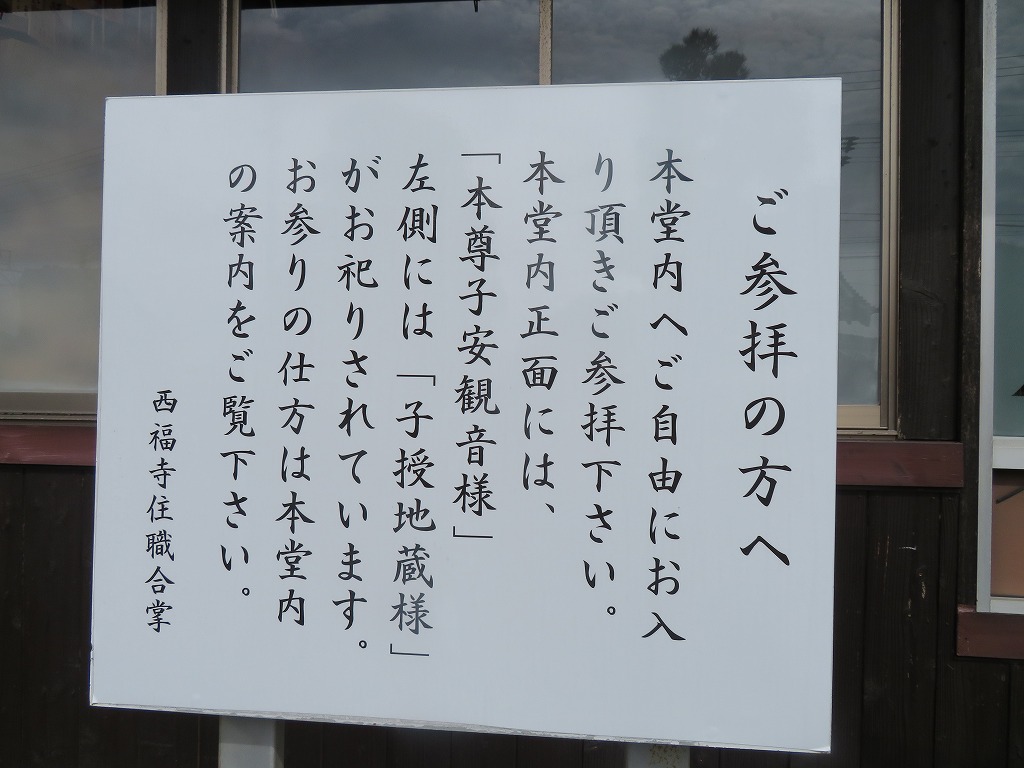 ご参拝の方へ
本堂内へご自由にお入
り頂きご参拝下さい。
本堂内正面には、
「本尊子安観音様」
左側には「子授地蔵様」
がお祀りされています。
お参りの仕方は本堂内
の案内をご覧下さい。
西福寺住職合掌